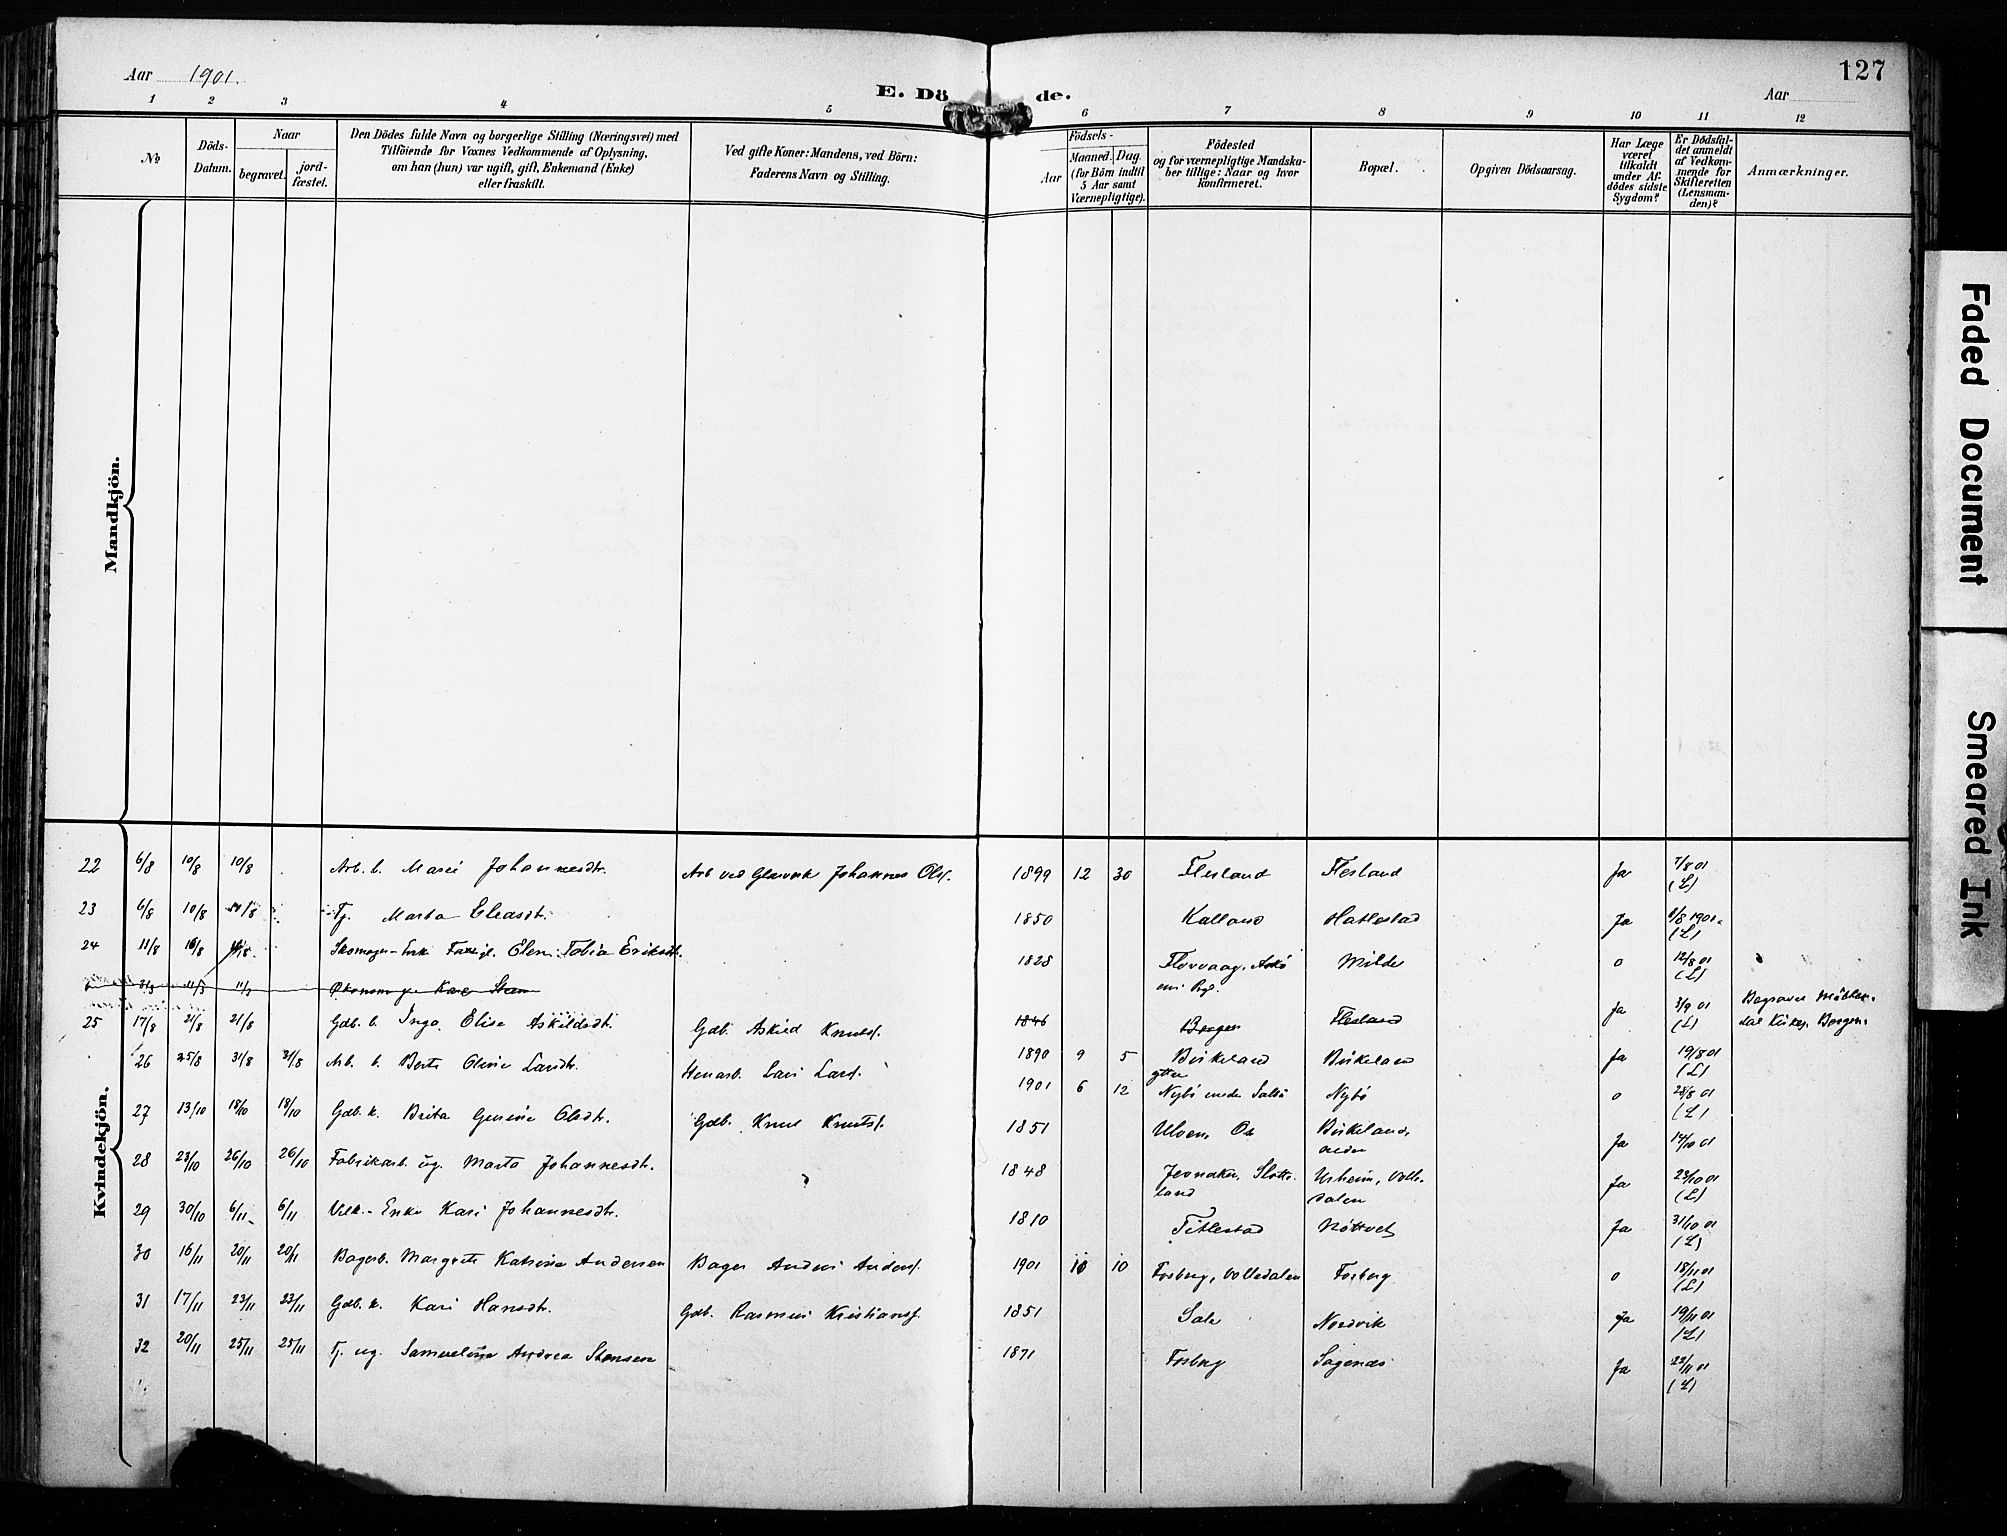 Aar 1901.
E. Döde.
Aar
127
1 2 3 4 5 6 7 8 9 10 11 12
№
Döds-
Datum.
Naar
begravet.
jord-
fæstet.
Den Dödes fulde Navn og borgerlige Stilling (Næringsvei) med
Tilföiende for Voxnes Vedkommende af Oplysning,
om han (hun) var ugift, gift, Enkemand (Enke)
eller fraskilt.
Ved gifte Koner: Mandens, ved Börn:
Faderens Navn og Stilling.
Födsels-
Aar
Maaned. Dag
(for Börn indtil
5 Aar samt
Værnepligtige).
Födested
og for værnepligtige Mandska-
ber tillige: Naar og hvor
konfirmeret.
Bopæl.
Opgiven Dödsaarsag.
Har Læge
været
tilkaldt
under Af-
dödes sidste
Sygdom?
Er Dödsfal-
det anmeldt
af Vedkom-
mende for
Skifteretten
(Lensman-
den)?
Anmærkninger.
Mandkjön.
Kvindekjön.
22 6/8 10/8 10/8 Arb. b. Marie Johannesdtr. Arb ved Glasverk Johannes Ols. 1899 12 30 Flesland Flesland Ja 7/8 01 (L)
23 6/8 10/8 10/8 Tj. Marta Eliasdt. 1850 Kalland Hatlestad Ja 8/8 1901. (L)
24 11/8 16/8 Skomager-Enke Elen Tobia Eriksdt. 1828 Florvaag, Askö Milde o 12/8 01 (L)
31/3 11/3 11/3 Økonom Stem 1846 Bergen Flesland Ja 3/9 01 (L) Begravet Möhlen-
dal Kirkeg. Bergen.
25 17/8 21/8 21/8 Gdb. b. Inga Elise Askildsdt. Gdb. Askild Knuts. 1890 9 5 Birkeland Birkeland Ja 19/8 01 (L)
26 25/8 31/8 31/8 Arb. b. Berta Oline Larsdt. Stenarb. Lars Lars. 1901 6 12 Nybö Nybö o 28/8 01 (L)
27 13/10 18/10 18/10 Gdb. k. Brita Gurine Olsdtr. Gdb. Knut Knuts. 1851 Ulven, Os Birkeland, Ja 14/10 01
28 23/10 26/10 26/10 Fabrikarb. ug. Marta Johannesdt. 1848 Jevnaker, Slotte-
land Urheim, Volle-
dalen Ja 23/10 01 (L)
29 30/10 6/11 6/11 Enke Kari Johannesdtr. 1810 Titlestad Nöttvet Ja 31/10 01 (L)
30 16/11 20/11 20/11 Bagerb. Margrete Katrine Andersen Bager Anders Anders. 1901 10 10 Fosberg, Volledalen Fosberg o 18/11 01 (L)
31 17/11 23/11 23/11 Gdb. k. Kari Hansdt. Gdb. Rasmus Kristians. 1851 Sale Nordvik Ja 19/11 01 (L)
32 20/11 25/11 25/11 Tj. ug. Samueline Andrea Stensen 1871 Fosberg Sagenes Ja 22/11 01 (L)
Faded Document
Smeared Ink